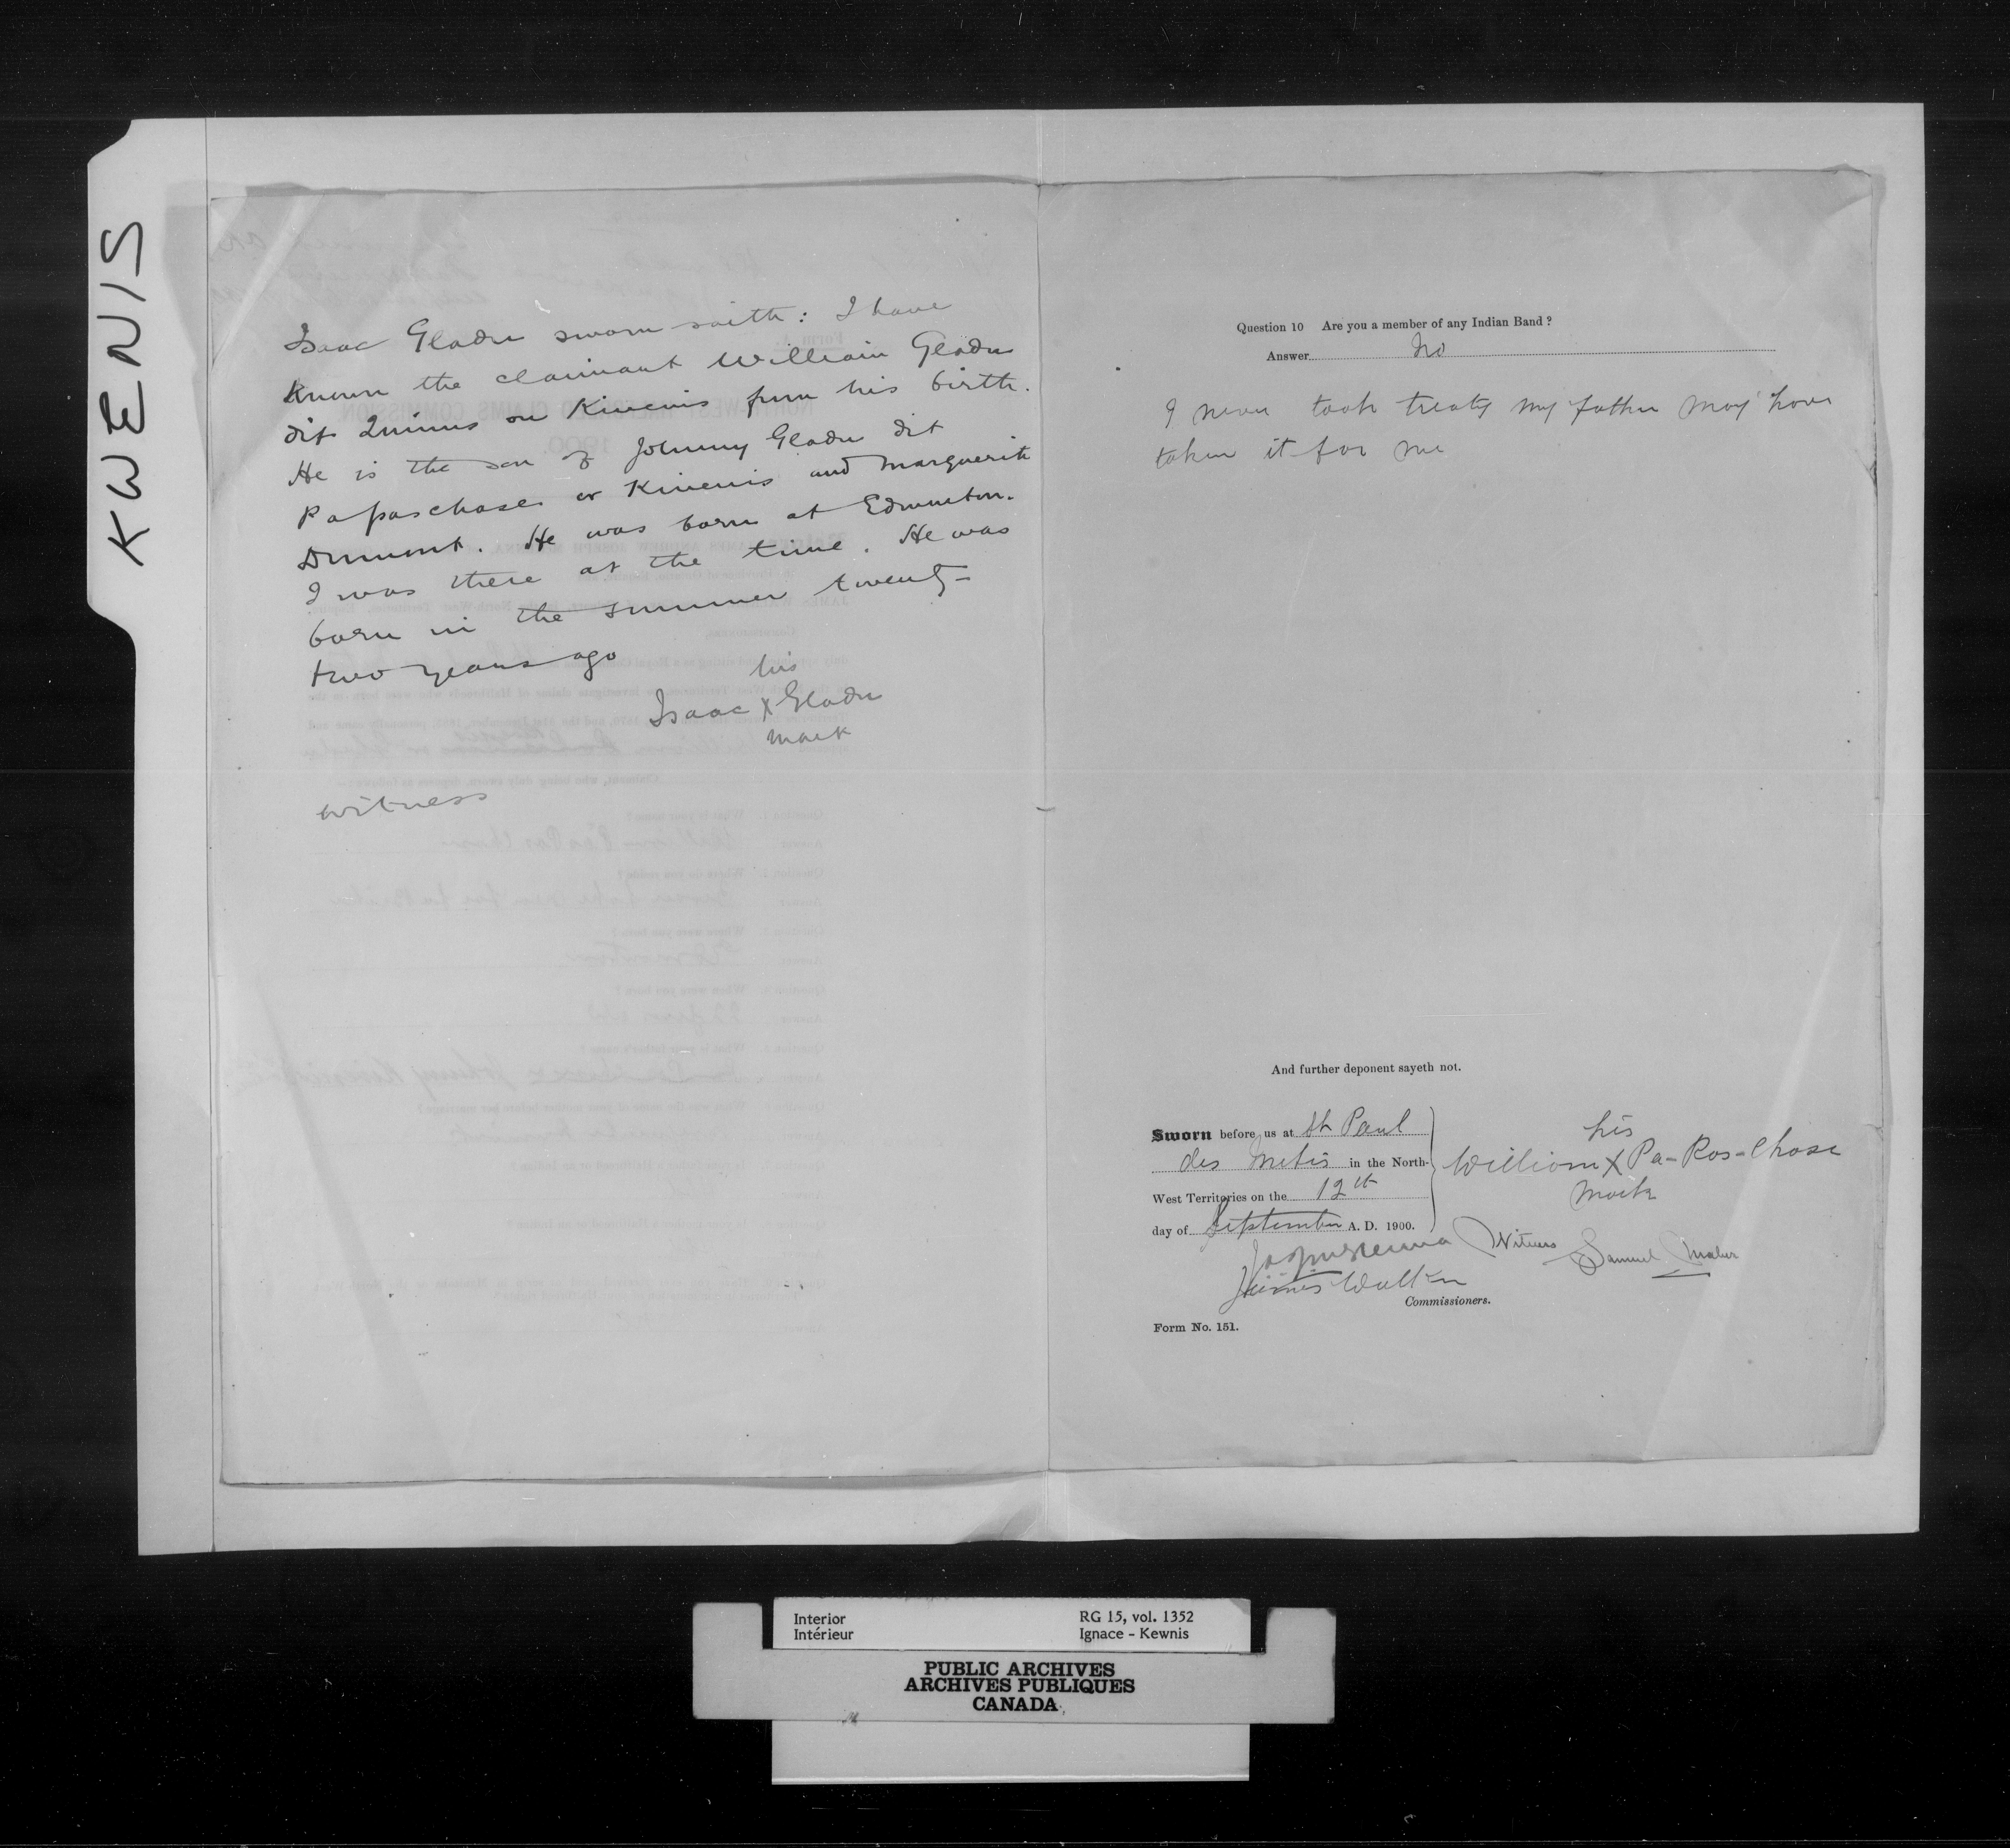 KWENIS
Isaac Gladu sworn saith: I have
known the claimant William Gladu
dit Quinus or Kinenis from his birth.
He is the son of Johnny Gladu dit
Papaschase or Kinenis and Marguerite
Dumont. He was born at Edmonton.
I was there at the time. He was
born in the summer twenty-
two years ago
his
Isaac X Gladu
mark
witness
Question 10 Are you a member of any Indian Band?
Answer No
I never took treaty my father may have
taken it for me
And further deponent sayeth not.
Sworn before us at St Paul
des Metis in the North-
West Territories on the 12th
day of September A. D. 1900.
his
William X Pa-Pas-Chase
mark
Witness Samuel
James Walker
Commissioners.
Form No. 151.
Interior
Intérieur
RG 15, vol. 1352
Ignace - Kewnis
PUBLIC ARCHIVES
ARCHIVES PUBLIQUES
CANADA